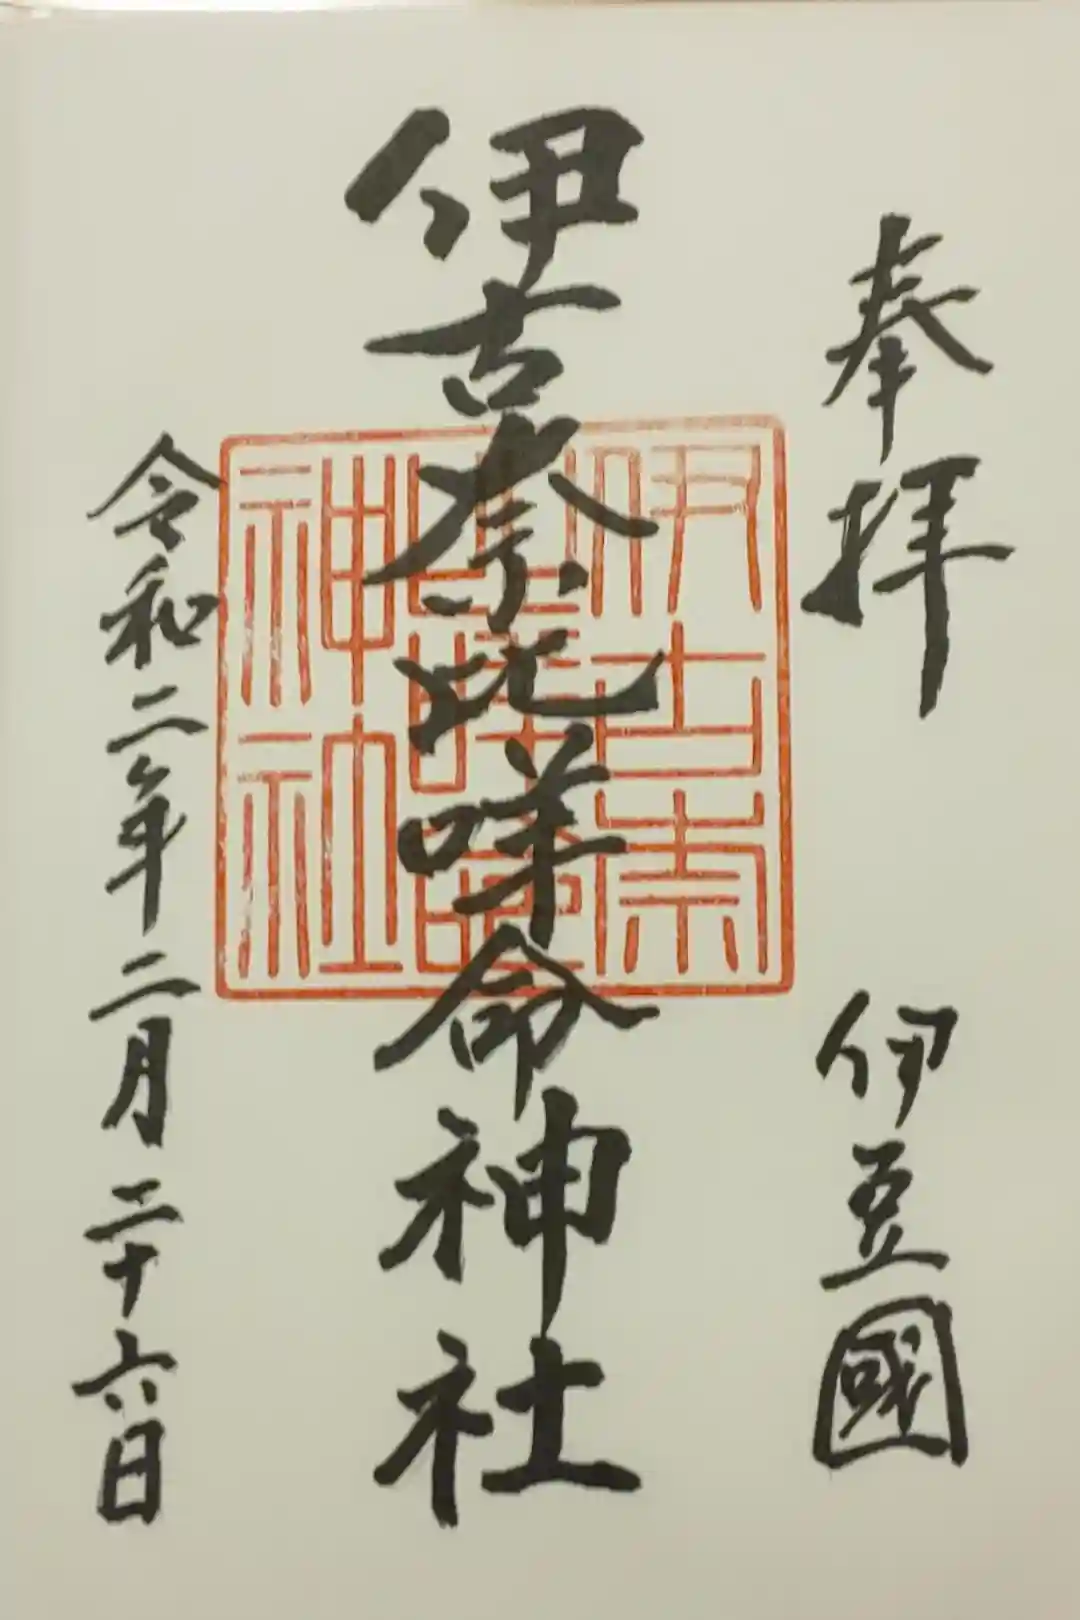 奉拝
伊豆國
伊古奈比咩命神社
伊古奈
比咩命
神社
令和二年二月二十六日